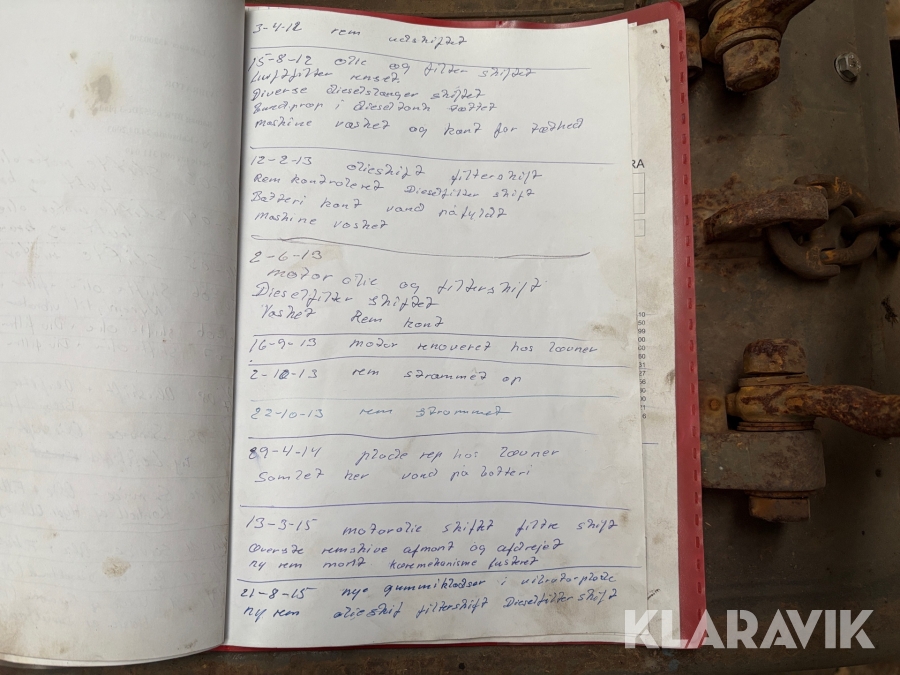 3-4-12 rem udskiftet
15-8-12 olie og filter skiftet
Luftfilter renset
Diverse dieselslanger skiftet
Bundprop i dieseltank tættet
Maskine vasket og kont for tæthed
12-2-13 olieskift filterskift
Rem kontroleret Dieselfilter skift
Batteri kont vand påfyldt
Maskine vasket
2-6-13
motor olie og filterskift
Dieselfilter skiftet
Vasket Rem kont
16-9-13 motor renoveret hos
2-10-13 rem strammet op
22-10-13 rem strammet
29-4-14 plade rep hos
Samlet her vand på batteri
13-3-15 motorolie skiftet filtre skift
øverste remskive afmont og afdrejet
ny rem mont køremekanisme justeret
21-8-15 nye gummiklodser i vibratorplade
ny rem olieskif filterskift Dieselfilter skift
RA
KLARAVIK